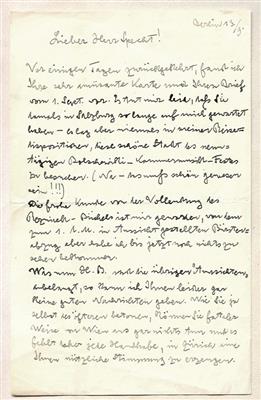 Berlin 13/
Lieber Herr Specht!
Vor einigen Tagen zurückgekehrt, fand ich
Ihre sehr amüsante Karte und Ihren Brief
vom 1. Sept. vor. Es tut mir leid, daß Sie
damals in Salzburg so lange auf mich gewartet
haben – es lag aber niemals in meiner Reise-
dispositionen, diese schöne Stadt des
Kammermusik-Festes
zu besuchen. ( muß schön gewesen
sein!!!)
Die frohe Kunde von der Vollendung des
ist mir geworden, von dem
zum 1. d. M. in Aussicht gestellten Bürsten-
abzug aber habe ich bis jetzt noch nichts zu
sehen bekommen.
Was nun die übrigen Aussichten
anbelangt, so kann ich Ihnen leider gar
keine guten Nachrichten geben. Wie Sie ja
selbst des öfteren betonen, können Sie
Weise von Wien aus gar nichts tun und es
fehlt jede Handhabe, in Zürich eine
Ihnen nützliche Stimmung zu erzeugen.